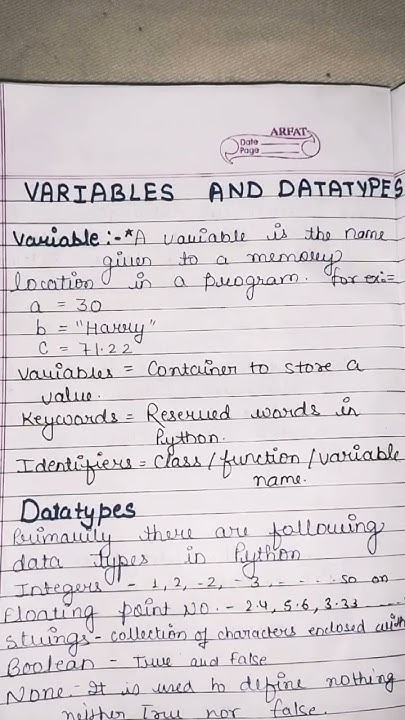 ARFAT
Date
Page
VARIABLES AND DATATYPES
Variable :- *A variable is the name
given to a memory
location in a program. for ex:=
a = 30
b = "Harry"
c = 71.22
Variables = Container to store a
value.
Keywords = Reserved words in
Python.
Identifiers = Class / function / variable
name.
Datatypes
Primarily there are following
data types in Python
Integers - 1, 2, -2, -3 ------ so on
Floating point NO. - 2.4, 5.6, 3.33 ---
Strings - collection of characters enclosed with
Boolean - True and False
None - It is used to define nothing
neither True nor false.